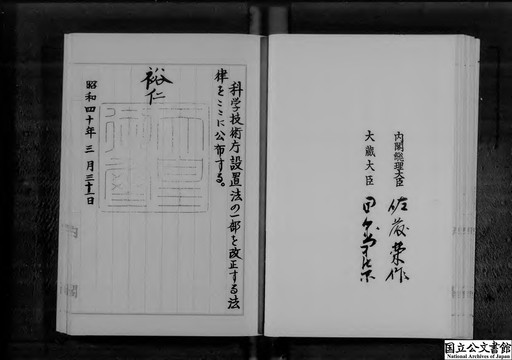 内閣総理大臣 佐藤榮作
大蔵大臣 田中角榮
科学技術庁設置法の一部を改正する法
律をここに公布する。
裕仁
天皇
御璽
昭和四十年三月三十一日
国立公文書館
National Archives of Japan